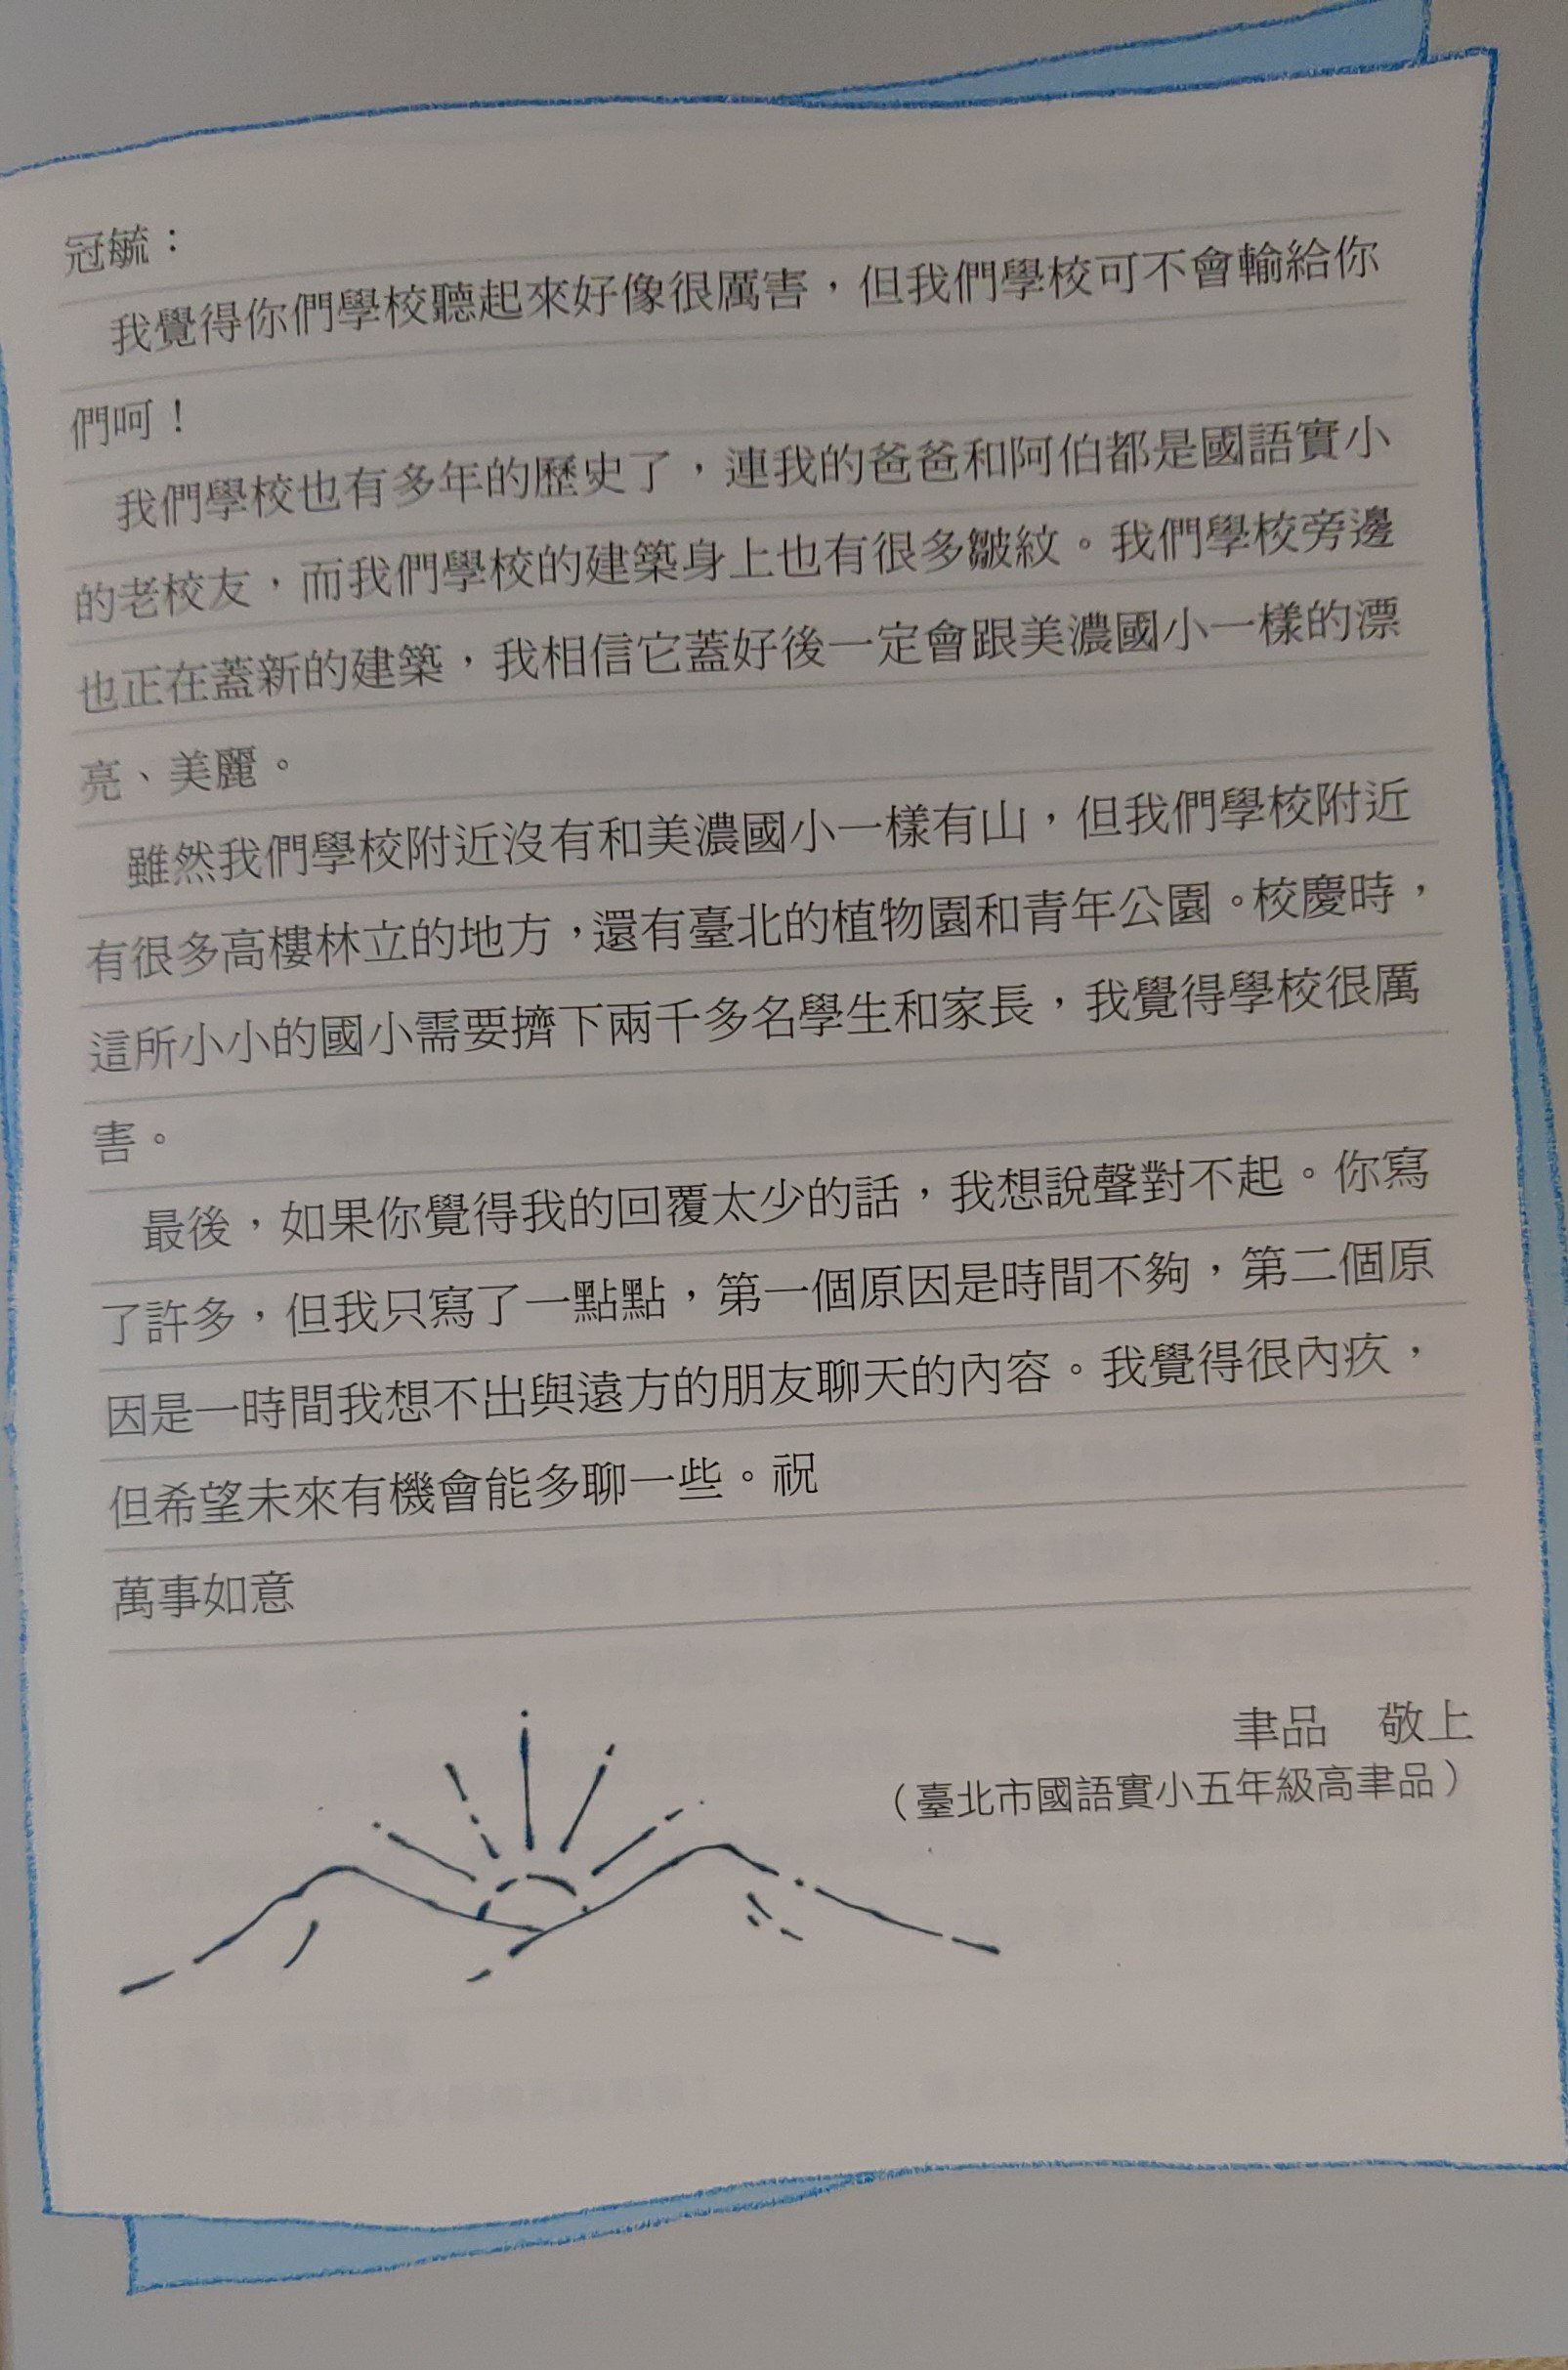 冠毓：
我覺得你們學校聽起來好像很厲害，但我們學校可不會輸給你
們呵！
我們學校也有多年的歷史了，連我的爸爸和阿伯都是國語實小
的老校友，而我們學校的建築身上也有很多皺紋。我們學校旁邊
也正在蓋新的建築，我相信它蓋好後一定會跟美濃國小一樣的漂
亮、美麗。
雖然我們學校附近沒有和美濃國小一樣有山，但我們學校附近
有很多高樓林立的地方，還有臺北的植物園和青年公園。校慶時，
這所小小的國小需要擠下兩千多名學生和家長，我覺得學校很厲
害。
最後，如果你覺得我的回覆太少的話，我想說聲對不起。你寫
了許多，但我只寫了一點點，第一個原因是時間不夠，第二個原
因是一時間我想不出與遠方的朋友聊天的內容。我覺得很內疚，
但希望未來有機會能多聊一些。祝
萬事如意
聿品　敬上
（臺北市國語實小五年級高聿品）